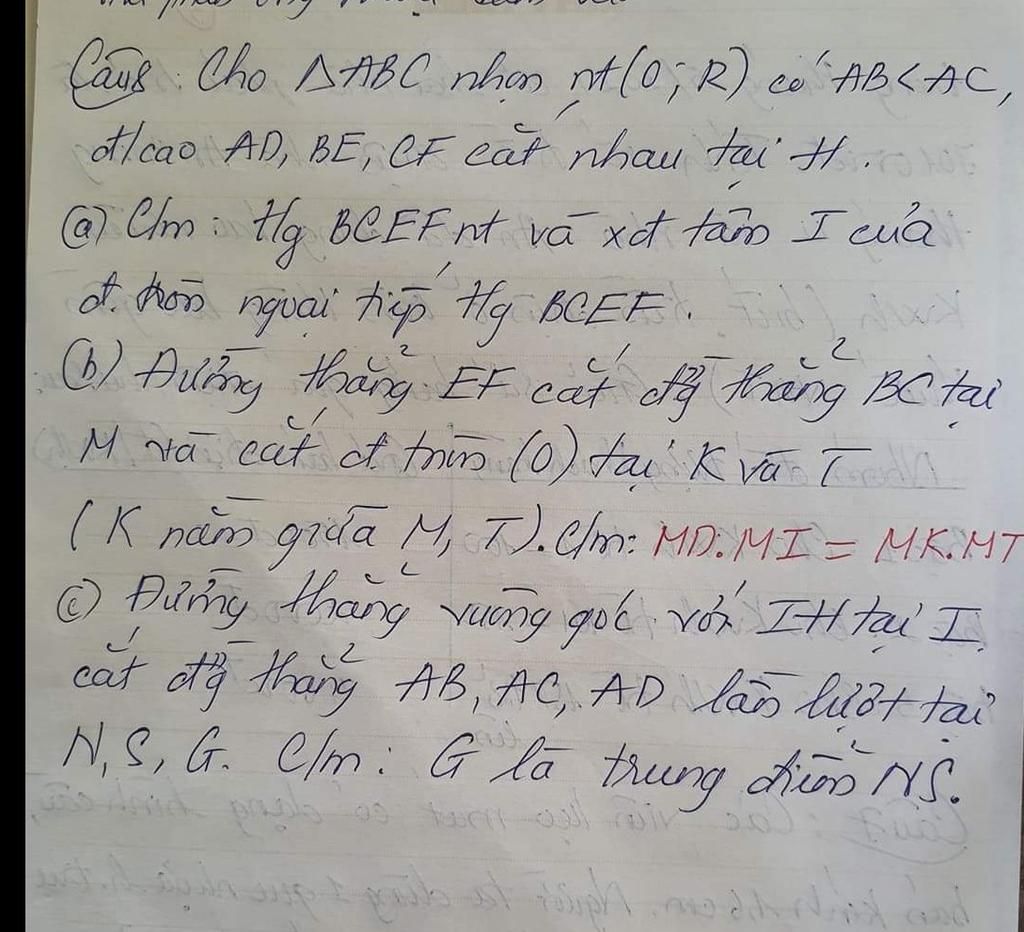 Câu8: Cho △ABC nhọn nt(O; R) có AB<AC,
đ/cao AD, BE, CF cắt nhau tại H.
(a) C/m: tg BCEF nt và xđ tâm I của
đ. tròn ngoại tiếp tg BCEF.
(b) Đường thẳng EF cắt đg thẳng BC tại
M và cắt đ tròn (O) tại K và T
(K nằm giữa M, T). C/m: MD.MI = MK.MT
(c) Đường thẳng vuông góc với IH tại I
cắt đg thẳng AB, AC, AD lần lượt tại
N, S, G. C/m: G là trung điểm NS.